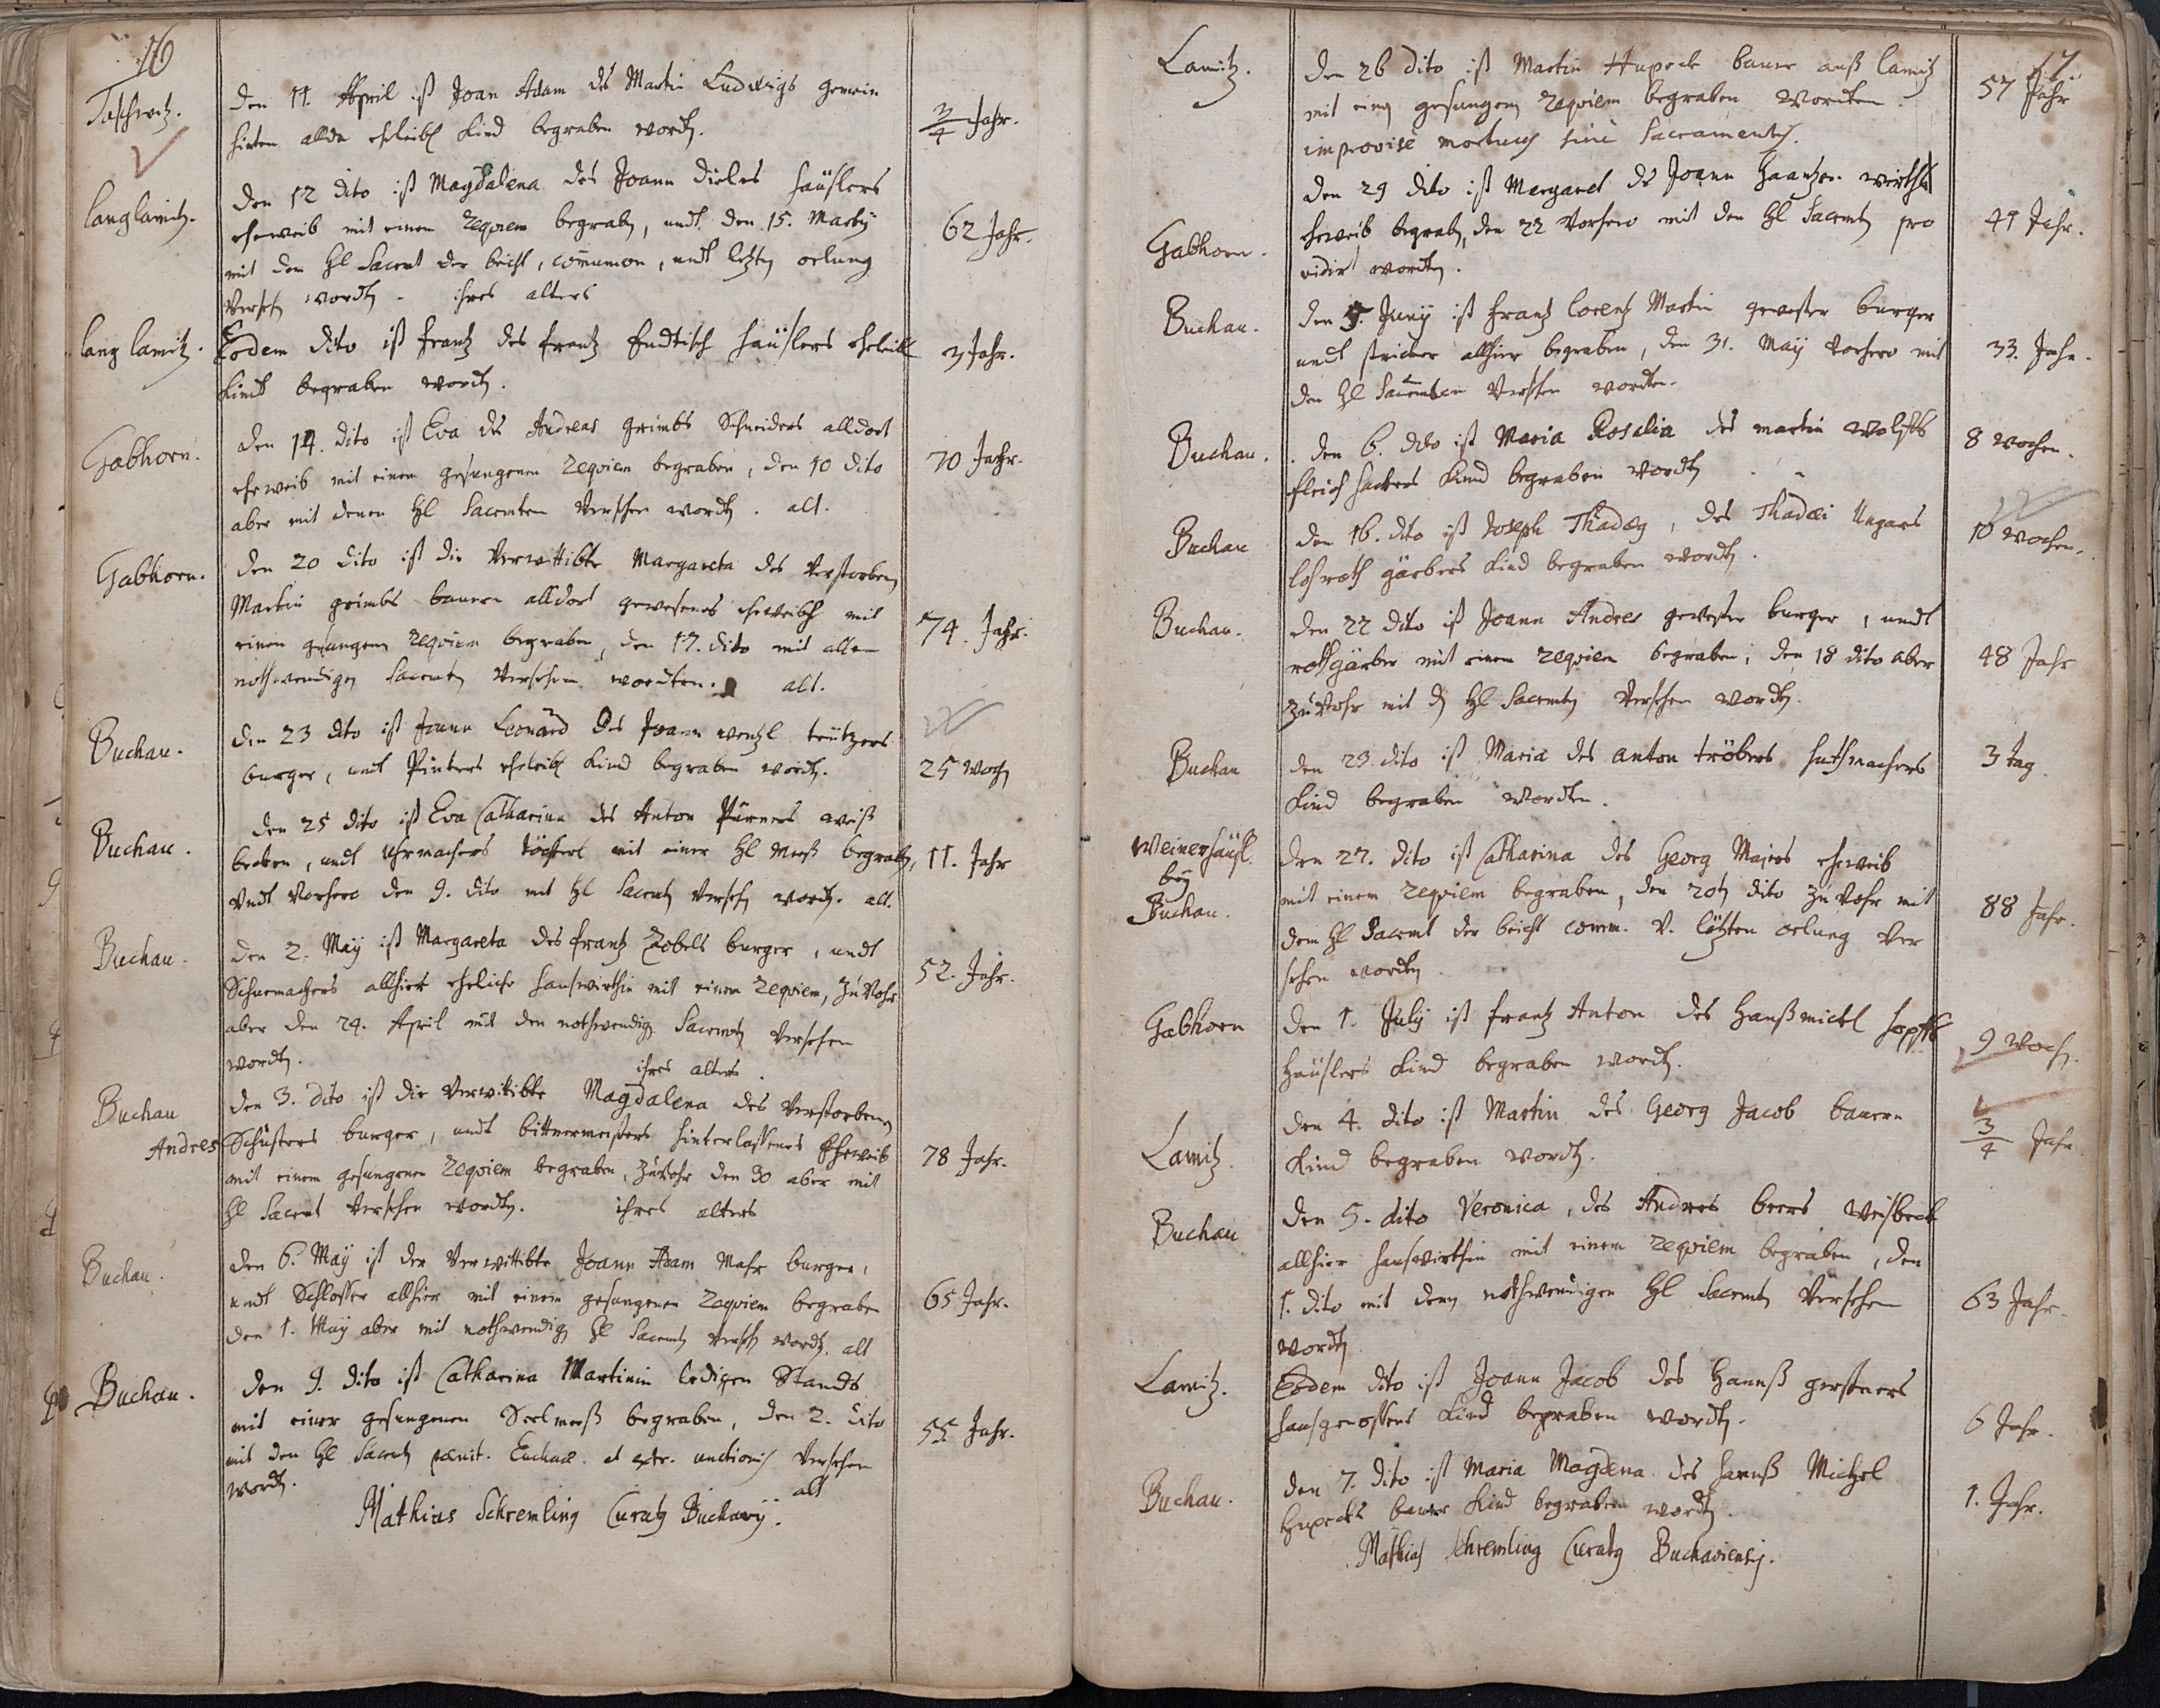 16
Taschwitz.
Den 11. April ist Joan Adam des Martin Ludwigs gemein
hirten allda ehleibl Kind begraben wordn.
3/4 Jahr.
langlamitz.
Den 12 dito ist Magdalena des Joann Dieles Häuslers
eheweib mit einem Requiem begraben, undt den 15. Martÿ
mit den Hl Sacmt der beicht, common, undt letzten oelung
Versehn wordn. ihres alters
62 Jahr.
lang lamitz.
Eodem dito ist frantz des frantz Endtisch Häuslers ehleibl
Kindt begraben wordn.
3 Jahr.
Gabhorn.
Den 14. dito ist Eva des Andreas Grimbs Schneiders alldort
eheweib mit einem gesungenem Requiem begraben, den 10 dito
aber mit denen Hl Sacmten Versehen wordn. alt.
70 Jahr.
Gabhorn.
Den 20 dito ist die Verwittibte Margareta des Verstorbenen
Martin grimbs bauern alldort gewesenes eheweib mit
einen gesungenem Requiem begraben, den 17. dito mit allen
nothwendigen Sacmtn Versehen wordten. alt.
74. Jahr.
Buchau.
Den 23 dito ist Joann Leonard des Joann wentzl trützers
burger, undt Pinters ehleibl Kind begraben wordn.
25 wochn
Buchau.
Den 25 dito ist Eva Catharina des Anton Pürners weiß
becken, undt Uhrmachers töchterl mit einer Hl Meeß begraben,
Undt Vorhero den 9. dito mit Hl Sacmtn Versehn wordn. alt.
11. Jahr
Buchau.
Den 2. Maÿ ist Margareta des frantz Zobels burger, undt
Schuemachers allhier eheliche Hauswirthin mit einem Requiem, zuvohr
aber den 24. April mit den nothwendign Sacmtn Versehen
wordn. ihres alters.
52. Jahr.
Buchau
Den 3. dito ist die Verwittibte Magdalena des Verstorbenen
Andres Schusters burger, undt bittnermeisters hinterlassenes Eheweib
mit einem gesungenen Requiem begraben, Zuvohr den 30 aber mit
Hl Sacmt Versehen wordn. ihres alters
78 Jahr.
Buchau.
Den 6. Maÿ ist der Verwittibte Joann Adam Mahr burger,
undt Schlosser allhier mit einem gesungenen Requiem begraben
den 1. Maÿ aber mit nothwendign Hl Sacmtn Versehn wordn. alt
65 Jahr.
Buchau.
Den 9. dito ist Catharina Martinin ledigen Stands
mit einer gesungenen Seelmeeß begraben, den 2. dito
mit den Hl Sacmtn pænit. Euchar. et extr. unctionis Versehen
wordn. alt
55 Jahr.
Mathias Schremling Curatus Buchavÿ.
17.
Lamitz.
Den 26 dito ist Martin Hupeck bauer auß lamitz
mit einen gesungen Requiem begraben wordten.
improvisè mortuus sine Sacramentis.
57 Jahr
Gabhorn.
Den 29 dito ist Margaret des Joann wirths
eheweib begraben, den 22 Vorhero mit den Hl Sacmtn pro
vidirt wordten.
41 Jahr.
Buchau.
Den 5. Junÿ ist frantz lorentz Martin gewester burger
undt stricker allhier begraben, den 31. Maÿ Vorhero mit
den Hl Sacmten Versehen wordten.
33. Jahr.
Buchau.
Den 6. dito ist Maria Rosalia des martin wolffs
fleischhackers Kind begraben wordn
8 wochen.
Buchau
Den 16. dito ist Joseph Thadæus, des Thadæi Ungars
lohroth gärbers Kind begraben wordn.
10 wochen.
Buchau.
Den 22 dito ist Joann Andres gewester burger, undt
rothgärber mit einem Requiem begraben, den 18 dito aber
zuvohr mit dn Hl Sacmtn Versehen wordn.
48 Jahr
Buchau
Den 23. dito ist Maria des anton tröbers huthmachers
Kind begraben wordten.
3 tag.
Weinerhäusl.
beÿ
Buchau.
Den 27. dito ist Catharina des Georg Maiers eheweib
mit einem Requiem begraben, den 20tn dito zuvohr mit
dem Hl Sacmt der beicht comm. V. letzten oelung Ver
sehen wordn.
88 Jahr.
Gabhorn
Den 1. Julÿ ist frantz Anton des Hanßmichl
Häuslers Kind begraben wordn.
9 Woch.
Lamitz.
Den 4. dito ist Martin des Georg Jacob bauern
Kind begraben wordn.
3/4 Jahr
Buchau
Den 5. dito Veronica, des Andres beers weisbeck
allhier hauswirthin mit einem Requiem begraben, den
1. dito mit denn nothwendigen Hl Sacmtn Versehen
wordn
63 Jahr.
Lamitz.
Eodem dito ist Joann Jacob des Hannß gerstners
hausgenossens Kind begraben wordn.
6 Jahr.
Buchau.
Den 7. dito ist Maria Magdena des Hannß Michel
Hupecks bauer Kind begraben wordn.
1. Jahr.
Mathias Schremling Curatus Buchaviensis.